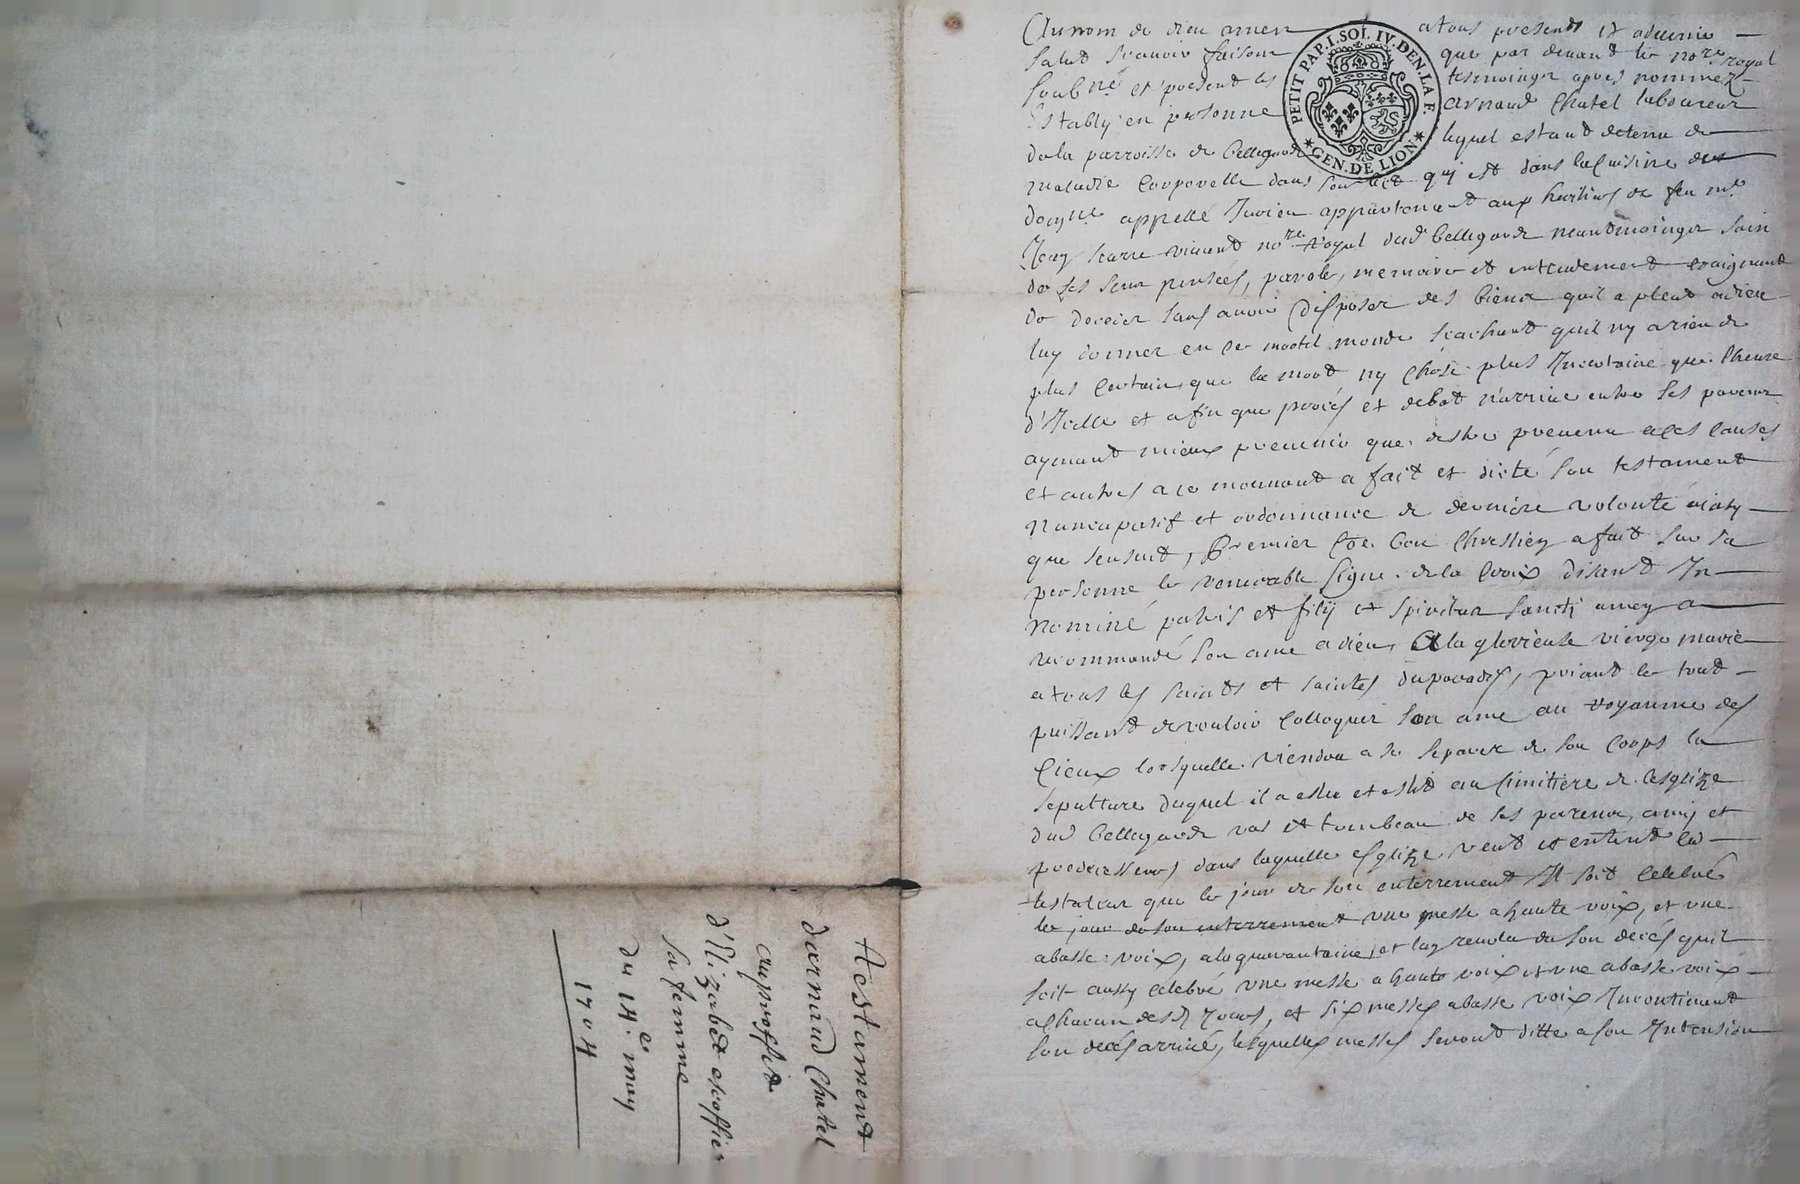 Au nom de dieu amen a tous presents et advenir
salut scavoir faisons que par devant le nore royal
soubné et present les tesmoingz apres nommez
Estably en personne arnaud Chatel laboureur
de la parroisse de bellegarde lequel estant detenu de
maladie corporelle dans son lict qui est dans la cuisine du
domne appellé Invien appartenant aux heritiers de feu me
Jean vivant nore Royal dud bellegarde neantmoingz sain
de ses sens pensées, parole, memoire et entendement craignant
de deceder sans avoir disposer des biens quil a pleut a dieu
luy donner en ce mortel monde scachant quil ny a rien de
plus certain que la mort ny chose plus Incertaine que l'heure
d'Icelle et afin que procés et debat n'arrive entre ses parens
aymant mieux prevenir que destre prevenu a ces causes
et autres a ce mouvant a fait et dicté son testament
nuncupatif et ordonnance de derniere volonté ainsy
que sensuit, Premier Coe bon Chrestien a fait sur sa
personne le venerable signe de la Croix disant In
nominé patris et filij et spiritus sancti amen a
recommandé son ame a dieu, A la glorieuse vierge marie
a tous les saints et saintes du paradis, priant le tout
puissant de vouloir colloquer son ame au royaume des
Cieux lorsquelle viendra a se separer de son Corps la
sepulture duquel il a esleu et eslit au cimitiere de lesglize
dud bellegarde vas et tombeau de ses parens, amis et
predecesseurs dans laquelle esglize veut et entend led
testateur que le jour de son enterrement Il soit celebré
le jour de son enterrement une messe a haute voix, et une
a basse voix, a la quarantaine, et lag revolu de son decés quil
soit aussy celebré une messe a haute voix et une a basse voix
a chacun desd Jours, et six messes a basse voix Incontinent
son decés arrivé, lesquelles messes seront ditte a son Intension
PETIT PAP. I. SOL. IV. DEN. LA F.
GEN. DE LION
testament
darnaud Chatel
au proffit
d'Elizabet escoffier
sa femme
du 14.e may
1704